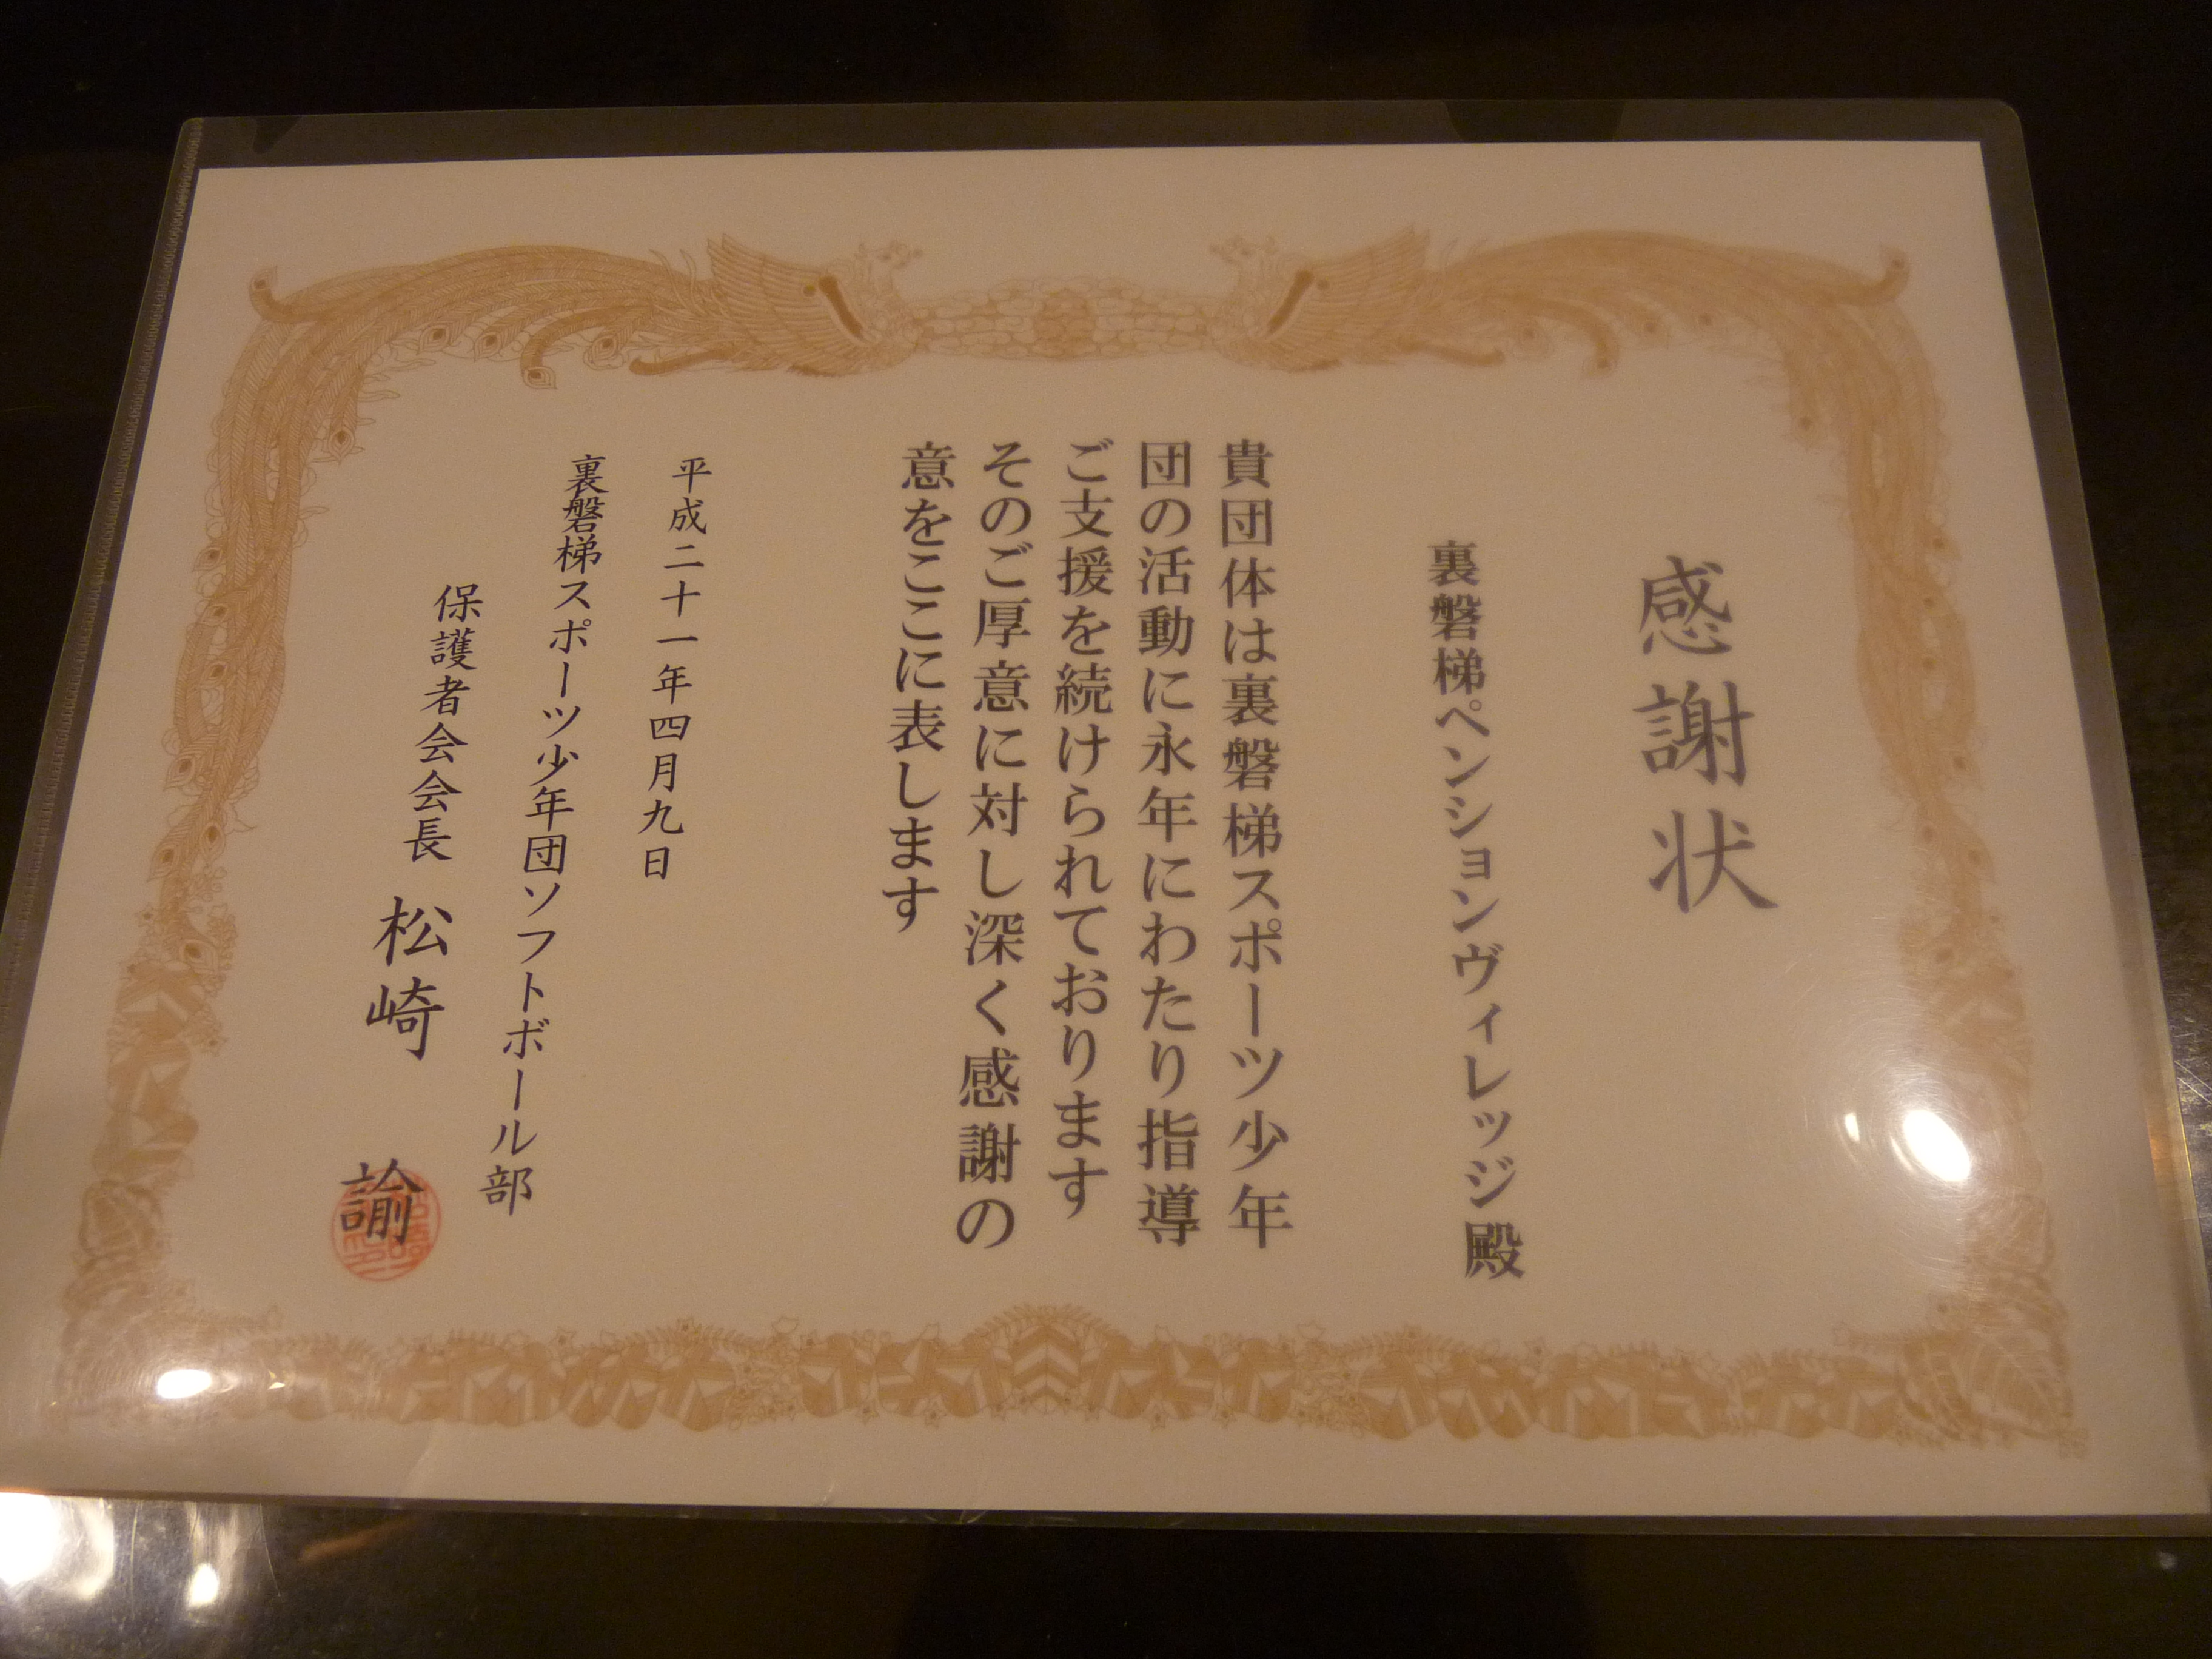 感謝状
裏磐梯ペンションヴィレッジ殿
貴団体は裏磐梯スポーツ少年
団の活動に永年にわたり指導
ご支援を続けられております
そのご厚意に対し深く感謝の
意をここに表します
平成二十一年四月九日
裏磐梯スポーツ少年団ソフトボール部
保護者会会長 松崎 諭